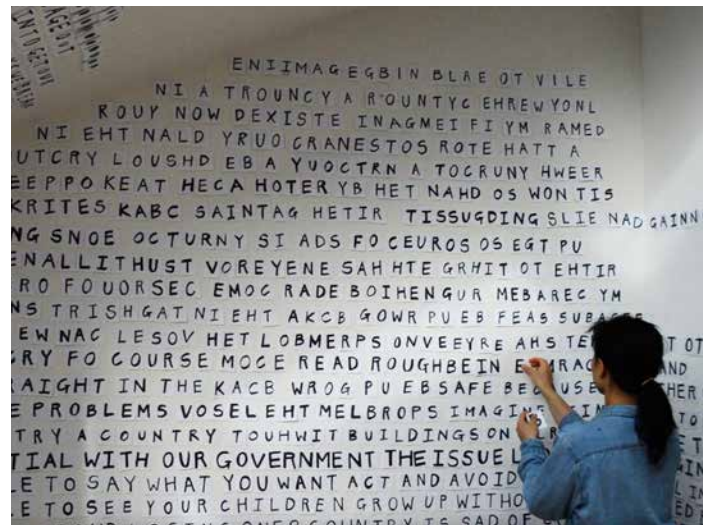 AGE OUT
INTO GET OUR
ENIIMAGEGBIN BLAE OT VILE
NI A TROUNCY A ROUNTYC EHREWYONL
ROUY NOW DEXISTE INAGMEI FI YM RAMED
NI EHT NALD YRUO CRANESTOS ROTE HATT A
UTCRY LOUSHD EBA YUOCTRN A TOCRUNY HWEER
EEPPO KEAT HECA HOTER YB HET NAHD OS WON TIS
KRITES KABC SAINTAG HETIR TISSUGDING SLIE NAD GAINN
NG SNOE OCTURNY SI ADS FO CEUROS OS EGT PU
ENALLITHUST VOREYENE SAH HTE GRHIT OT EHTIR
RO FOUORSEC EMOC RADE BOIHENGUR MEBAREC YM
NS TRISHGAT NI EHT AKCB GOWR PU EB FEAS
EW NAC LESOV HET LOBMERPS ONVEEYRE AHS OT
CRY FO COURSE MOCE READ ROUGHBEIN AND
RAIGHT IN THE KACB WROG PU EBSAFE HER
E PROBLEMS VOSELEHT MELBROPS TO
TRY A COUNTRY TOUHWIT BUILDINGS ON
TIAL WITH OUR GOVERNMENT THE ISSUE
LE TO SAY WHAT YOU WANT ACT AND AVOID
LE TO SEE YOUR CHILDREN GROW UP
COUNTRY IS SAD OF